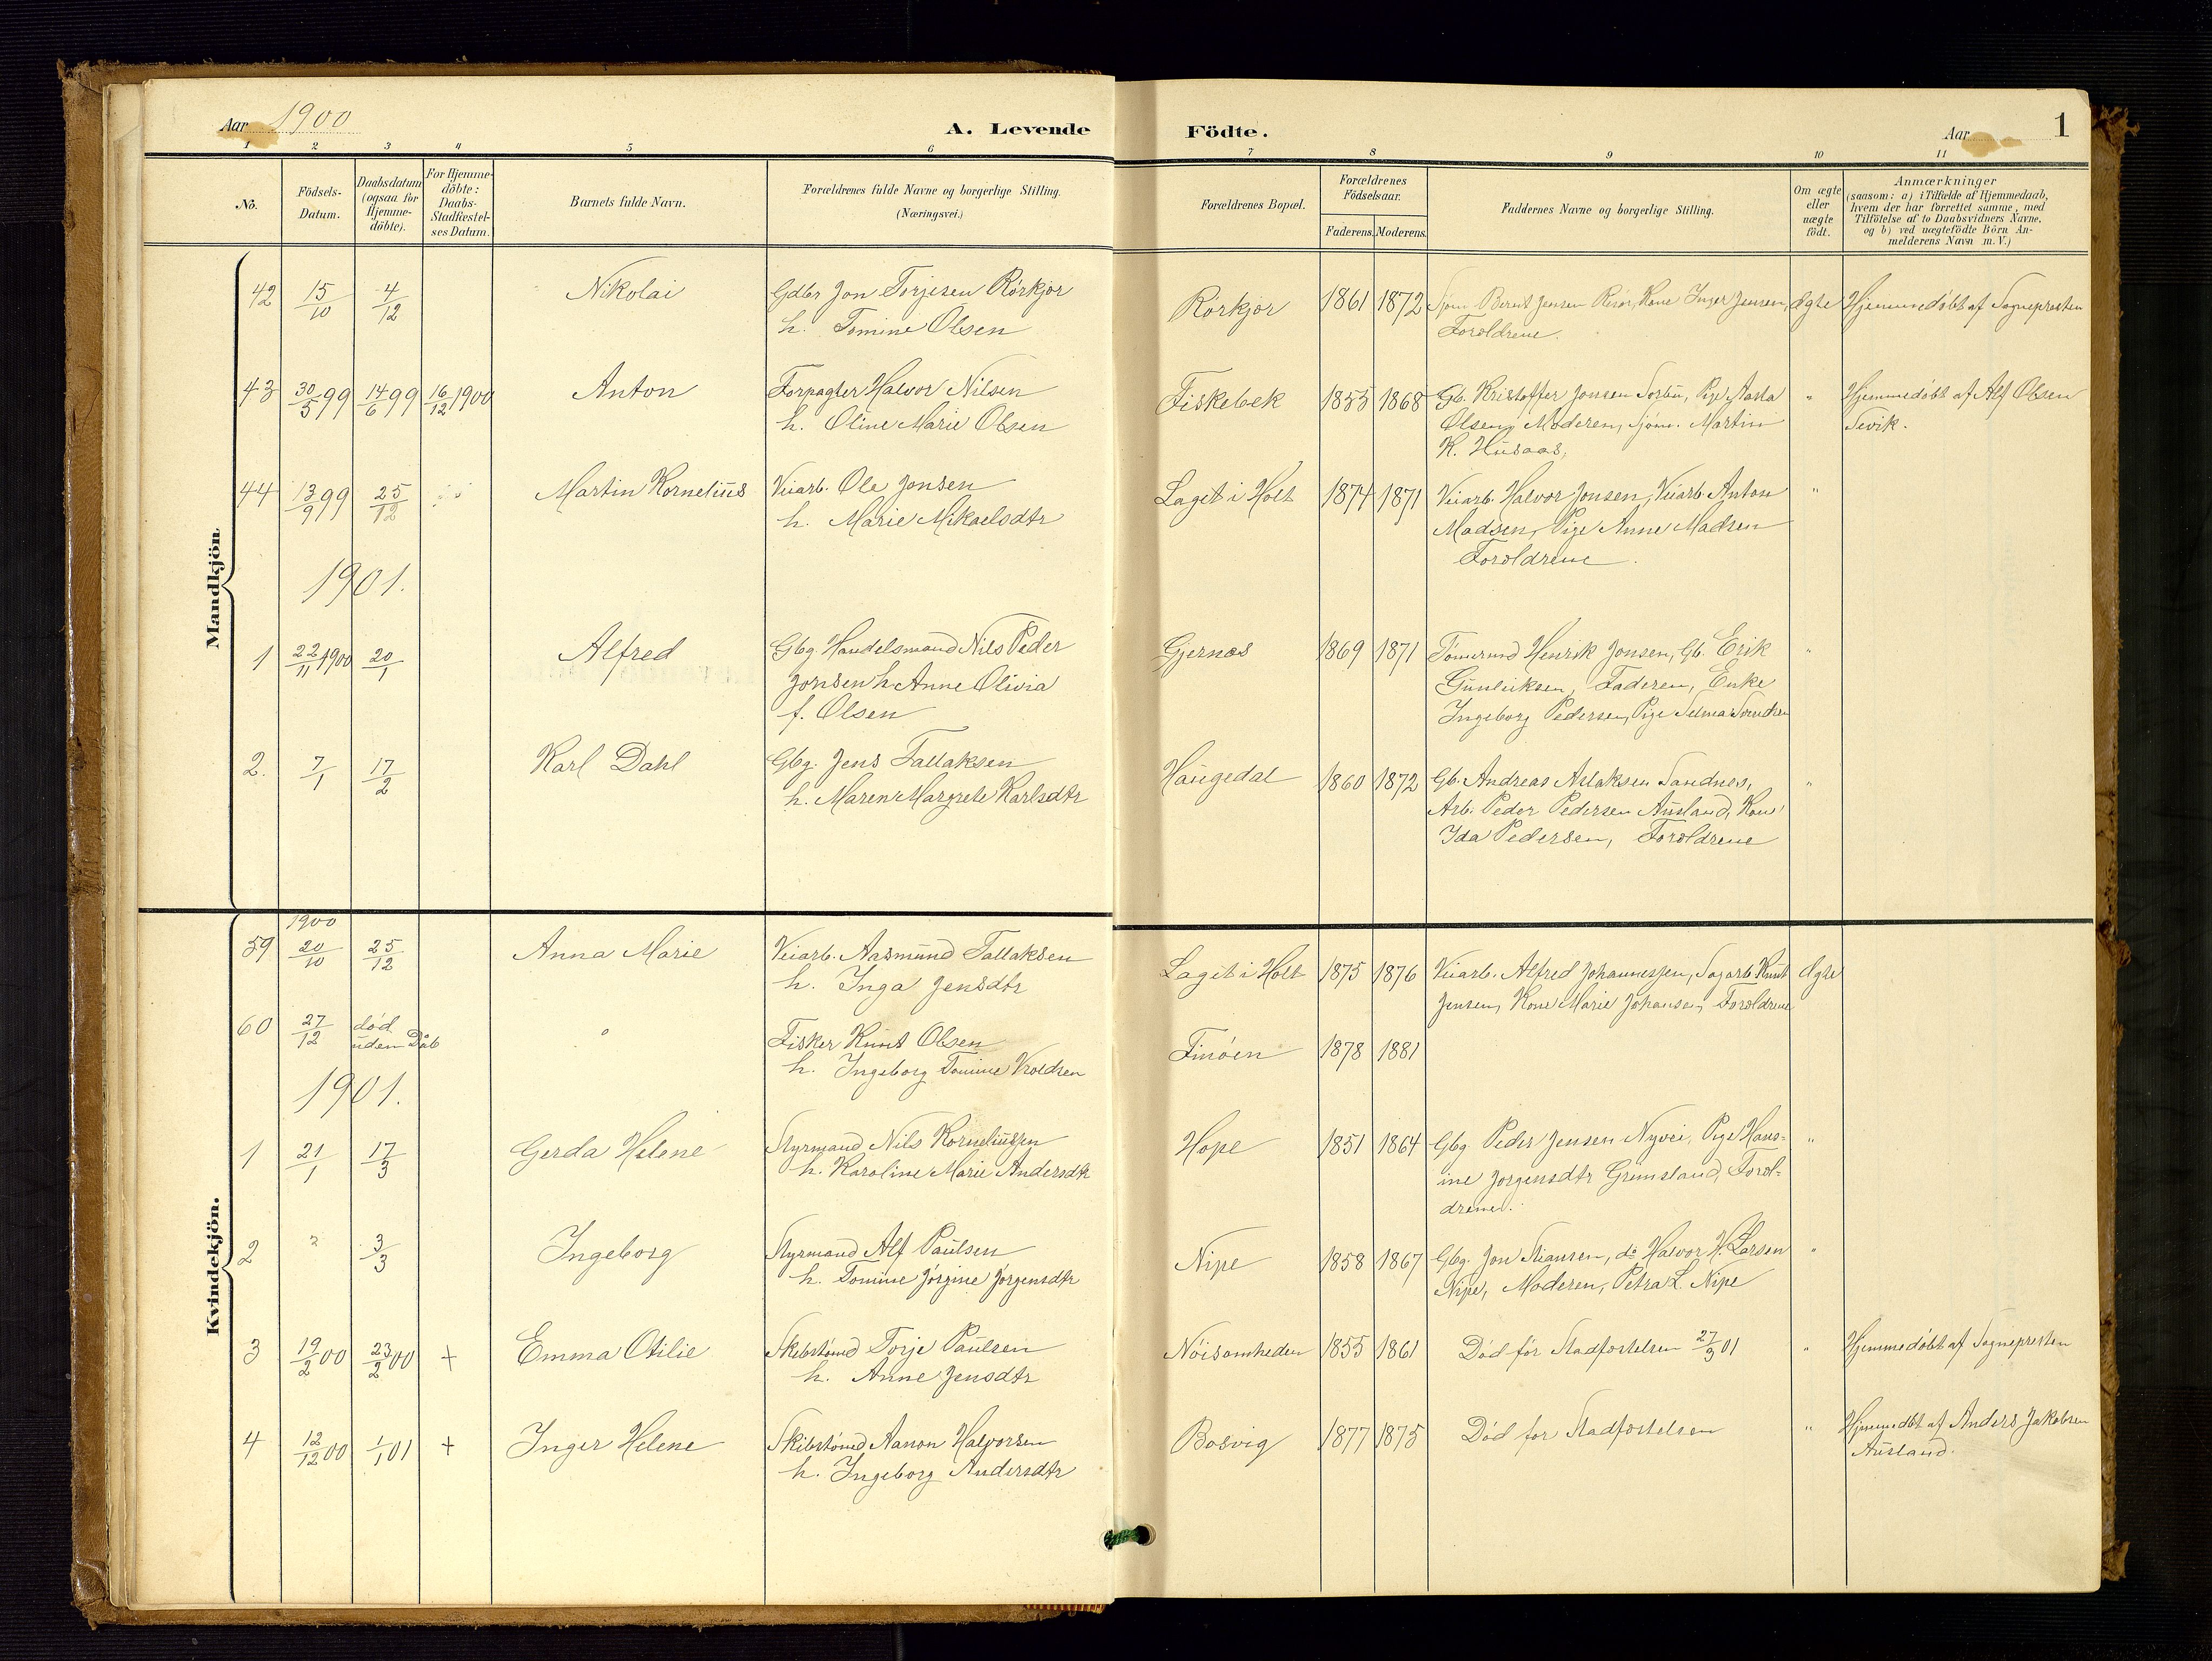 Aar 1900
A. Levende Födte.
Aar
1
1 2 3 4 5 6 7 8 9 10 11
No.
Födsels-
Datum.
Daabsdatum
(ogsaa for
Hjemme-
döbte).
For Hjemme-
döbte:
Daabs-
Stadfæstel-
ses Datum.
Barnets fulde Navn.
Forældrenes fulde Navne og borgerlige Stilling.
(Næringsvei.)
Forældrenes Bopæl.
Forældrenes
Födselsaar.
Faderens.
Moderens.
Faddernes Navne og borgerlige Stilling.
Om ægte
eller
uægte
födt.
Anmærkninger
(saasom: a) i Tilfælde af Hjemmedaab,
hvem der har forrettet samme, med
Tilföielse af to Daabsvidners Navne,
og b) ved uægtefödte Börn An-
melderens Navn m. V.)
Mandkjön.
42 15/10 4/12 Nikolai Gdbr Jon Torjesen Rörkjør Rörkjør 1861 1872 Sjøm. Bernt Jensen Risør, Kone Inger Jensen, ægte Hjemmedøbt af Sognepresten
h. Tomine Olsen Forældrene.
43 30/5 99 14/6 99 16/12 1900 Anton Forpagter Halvor Nilsen Fiskebek 1855 1868 Gb. Kristoffer Jonsen Sorbu, Pige Aasta " Hjemmedøbt af Alf Olsen
h. Oline Marie Olsen Olsen, Moderen, Sjøm. Martin Sevik.
K. Husaas,
44 13/9 99 25/12 Martin Kornelius Veiarb. Ole Jonsen Laget i Holt 1874 1871 Veiarb. Halvor Jonsen, Veiarb. Anton "
h. Marie Mikaelsdtr Madsen, Pige Anne Madsen
Forældrene.
1901.
1 22/11 1900 20/1 Alfred Gbg. Handelsmand Nils Peder Gjernæs 1869 1871 Tømmermd Henrik Jonsen, Gb. Erik "
Jonsen h. Anne Olivia Gunleiksen, Faderen, Enke
f. Olsen Ingeborg Pedersen, Pige Selma Svendsen
2. 7/1 17/2 Karl Dahl Gbg. Jens Tallaksen Haugedal 1860 1872 Gb. Andreas Aslaksen Sandnes, "
h. Maren Margrete Karlsdtr Arb. Peder Pedersen Ausland, Kone
Ida Pedersen, Forældrene
Kvindekjön.
1900
59 20/10 25/12 Anna Marie Veiarb. Aasmund Tallaksen Laget i Holt 1875 1876 Veiarb. Alfred Johannessen, Sagarb. Knut ægte
h. Inga Jensdtr Jensen, Kone Marie Johansen, Forældrene
60 27/12 død Fisker Knut Olsen Finøen 1878 1881
uden Dåb h. Ingeborg Tomine Vroldsen
1901.
1 21/1 17/3 Gerda Helene Styrmand Nils Korneliussen Hope 1851 1864 Gbg. Peder Jensen Nyvei, Pige Hans- "
h. Karoline Marie Andersdtr ine Jorgensdtr Grimsland, Foræl-
drene.
2 " 3/3 Ingeborg Styrmand Alf Paulsen Nipe 1858 1867 Gbg. Jon Stiansen, do Halvor H. Larsen "
h. Tomine Jörgine Jörgensdtr Nipe, Moderen, Petra L. Nipe
3 19/2 00 23/2 00 + Emma Otilie Skibstømd Torje Paulsen Nöisomheden 1855 1861 Død før Stadfæstelsen 27/3 01 " Hjemmedøbt af Sognepresten
h. Anne Jensdtr
4 12/12 00 1/1 01 + Inger Helene Skibstømd Aanon Halvorsen Bosvig 1877 1875 Død før Stadfæstelsen " Hjemmedøbt af Anders Jakobsen
h. Ingeborg Andersdtr Ausland.